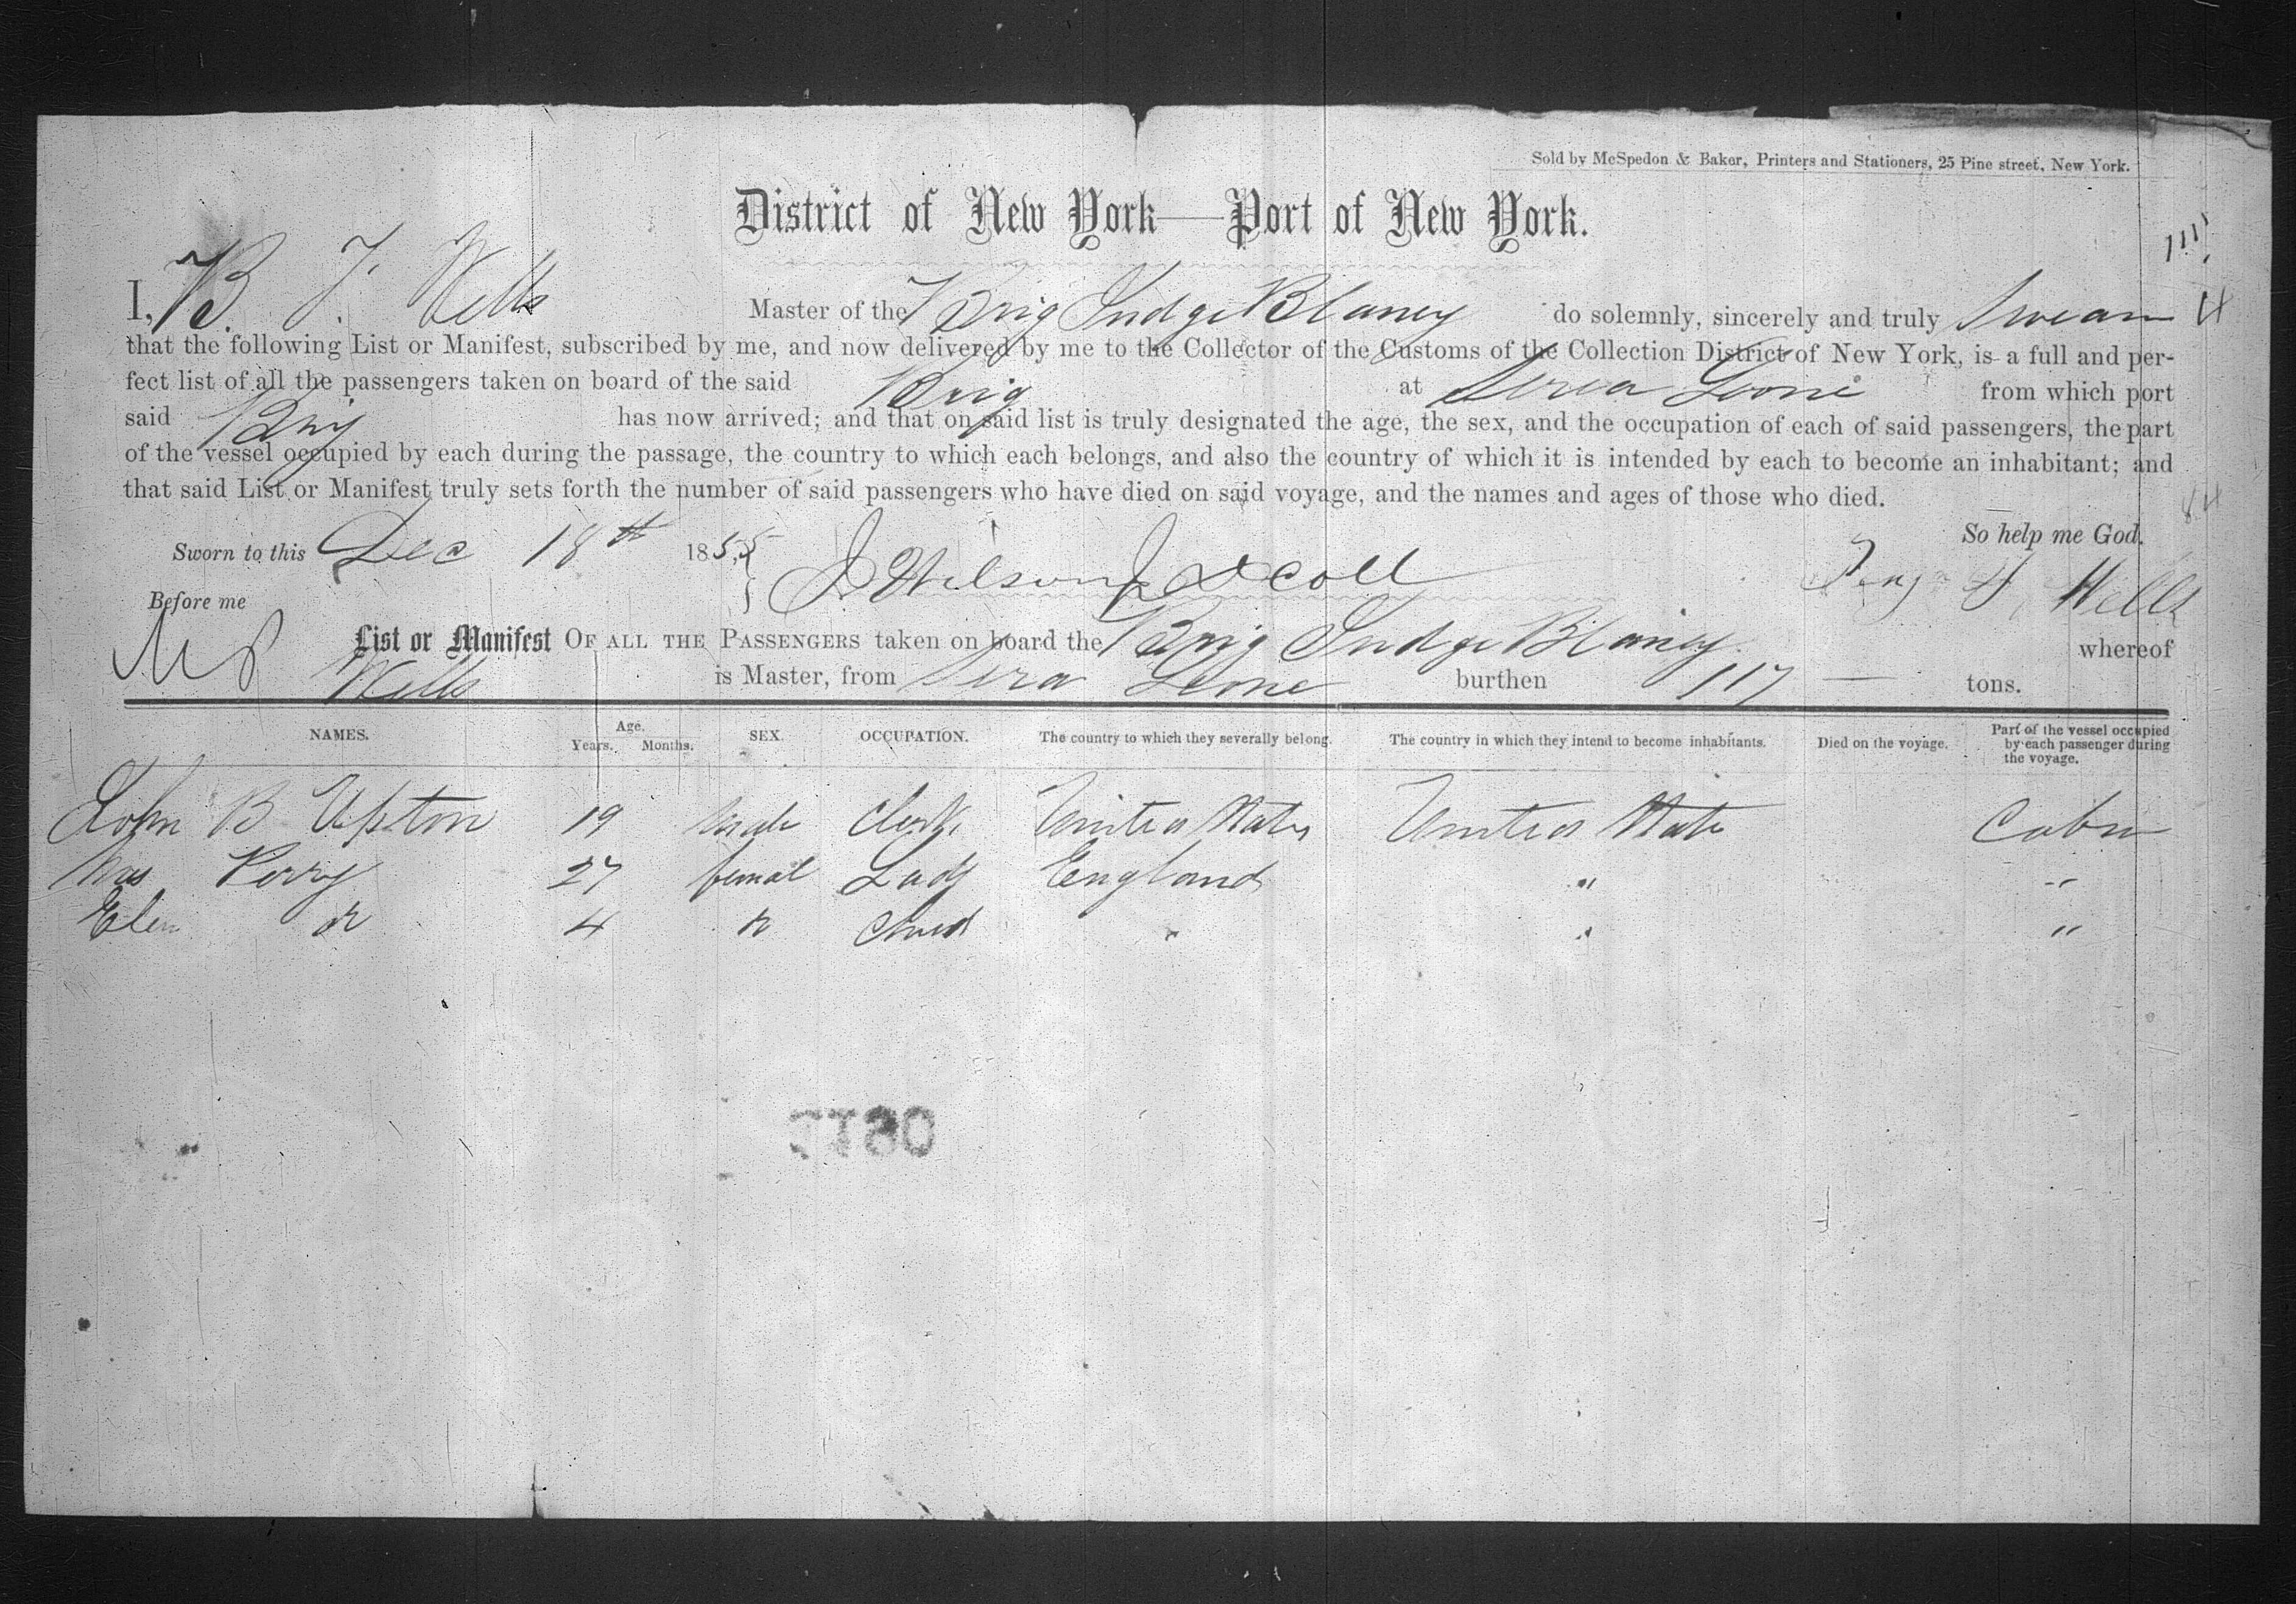 Sold by McSpedon & Baker, Printers and Stationers, 25 Pine street, New York.
District of New York—Port of New York.
I, B. F. Wells Master of the Brig Judge Blaney do solemnly, sincerely and truly Swear
that the following List or Manifest, subscribed by me, and now delivered by me to the Collector of the Customs of the Collection District of New York, is a full and per-
fect list of all the passengers taken on board of the said Brig at Sera Leone from which port
said Brig has now arrived; and that on said list is truly designated the age, the sex, and the occupation of each of said passengers, the part
of the vessel occupied by each during the passage, the country to which each belongs, and also the country of which it is intended by each to become an inhabitant; and
that said List or Manifest truly sets forth the number of said passengers who have died on said voyage, and the names and ages of those who died.
So help me God.
Sworn to this Dec 18th 1855
Before me Benj F. Wells
List or Manifest OF ALL THE PASSENGERS taken on board the Brig Judge Blaney whereof
Wells is Master, from Sera Leone burthen 117 — tons.
NAMES. Age. Years. Months. SEX. OCCUPATION. The country to which they severally belong. The country in which they intend to become inhabitants. Died on the voyage. Part of the vessel occupied by each passenger during the voyage.
John B Upton 19 male Clerk United States United State Cabin
Mrs Perry 27 femal Lady England " "
Elen 4 " " "